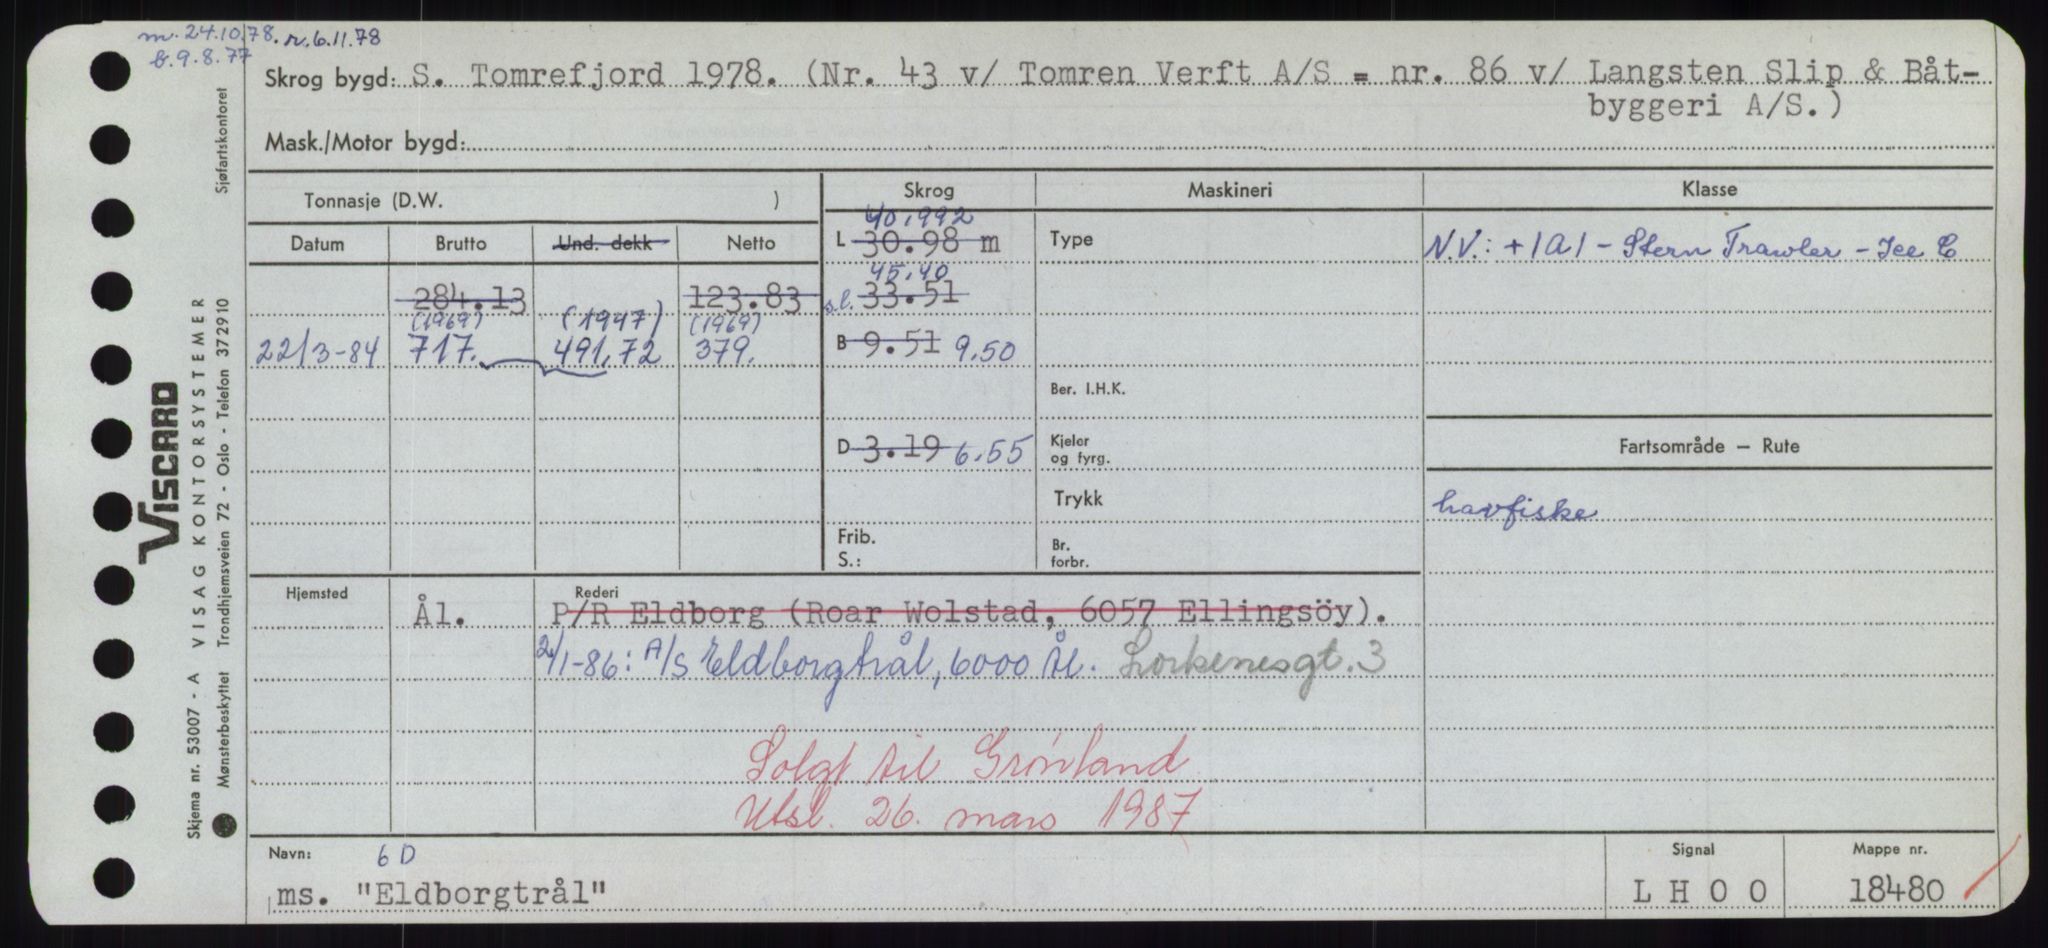 m. 24.10.78. r. 6.11.78
b. 9.8.77
Skrog bygd: S. Tomrefjord 1978. (Nr. 43 v/ Tomren Verft A/S = nr. 86 v/ Langsten Slip & Båt-
byggeri A/S.)
Mask./Motor bygd:
Tonnasje (D.W. )
Skrog
Maskineri
Klasse
Datum
Brutto
Und. dekk
Netto
40,992
L 30.98 m
Type
N.V.: + 1A1 - Stern Trawler - Ice C
45,40
284.13
123.83
s.l. 33.51
(1969) (1947) (1969)
22/3-84 717. 491,72 379.
B 9.51 9,50
Ber. I.H.K.
D 3.19 6,55
Kjeler
og fyrg.
Fartsområde — Rute
Trykk
havfiske
Frib.
S.:
Br.
forbr.
Hjemsted
Rederi
Ål. P/R Eldborg (Roar Wolstad, 6057 Ellingsöy).
2/1-86: A/S Eldborgtrål, 6000 Ål. Lorkenesgt. 3
Solgt til Grønland
Utsl. 26. mars 1987
Navn: 6 D
ms. "Eldborgtrål"
Signal
L H O O
Mappe nr.
18480
Skjema nr. 53007 - A VISAG KONTORSYSTEMER
Viscard
Mønsterbeskyttet Trondhjemsveien 72 - Oslo - Telefon 372910
Sjøfartskontoret